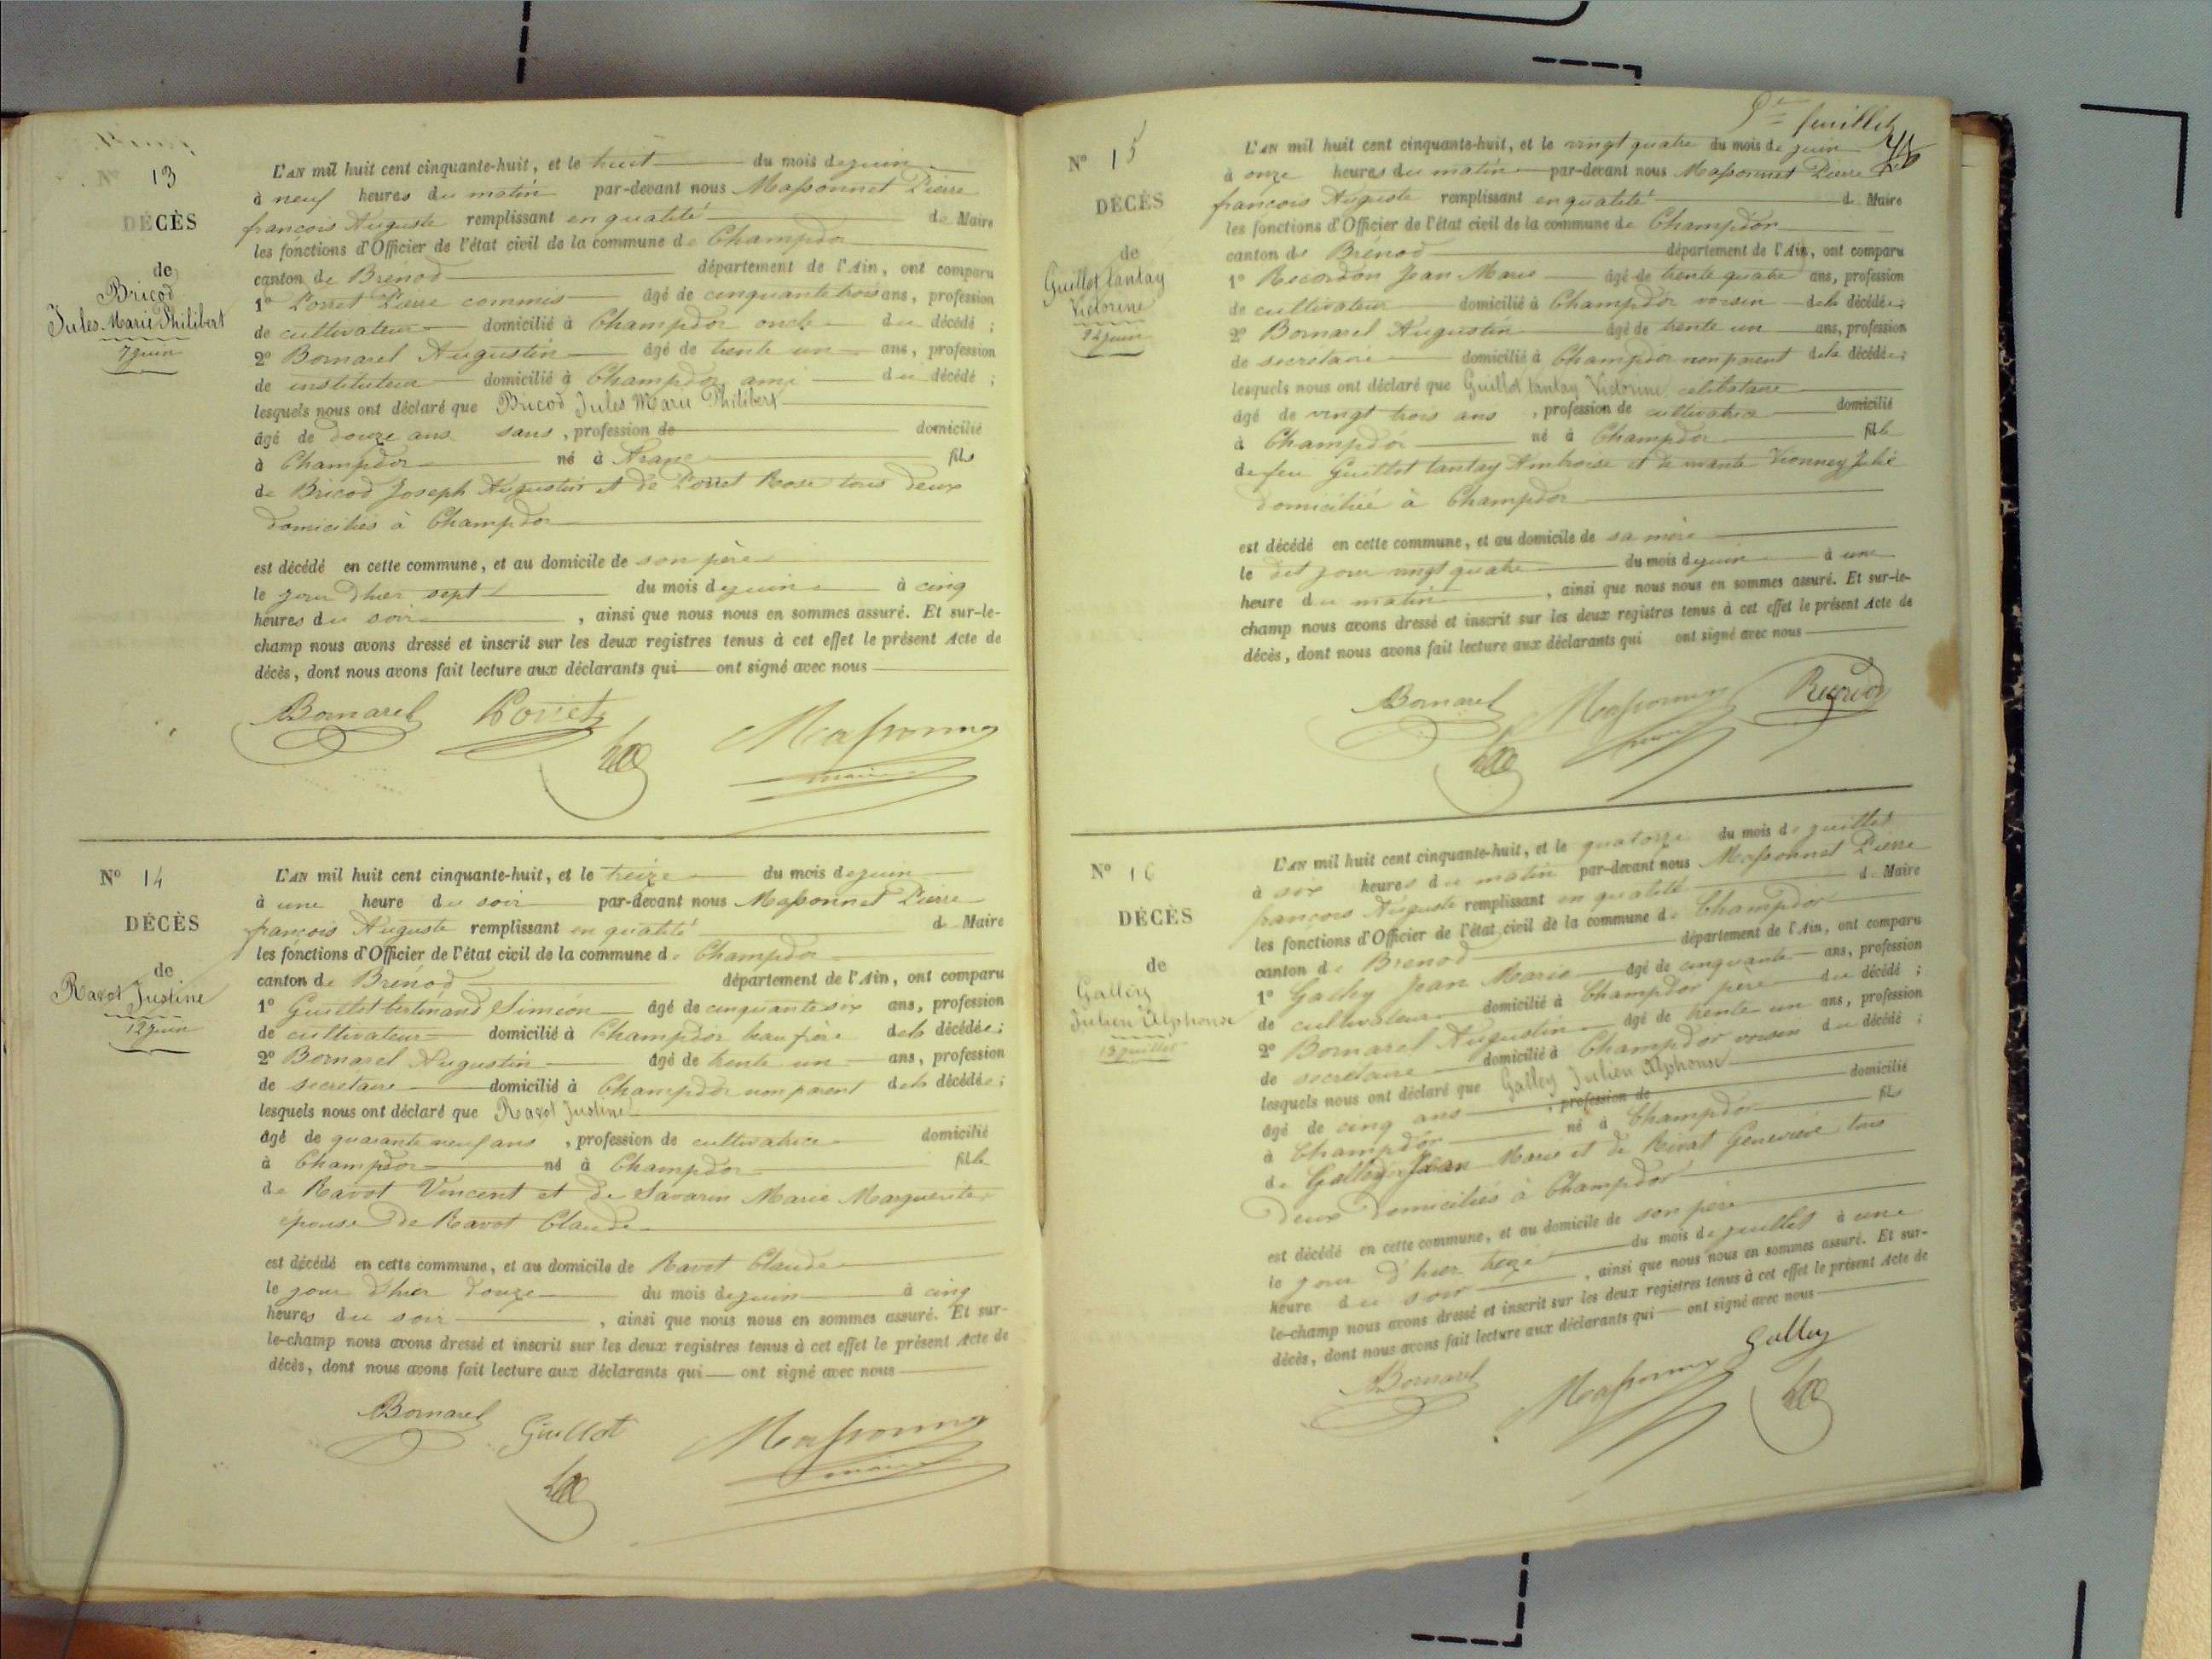 N° 13
DÉCÈS
de
Bricod
Jules-Marie Philibert
7 juin
L'AN mil huit cent cinquante-huit, et le huit du mois de juin
à neuf heures du matin par-devant nous Massonnet Pierre
françois Auguste remplissant en qualité de Maire
les fonctions d'Officier de l'état civil de la commune de Champdor
canton de Brénod département de l'Ain, ont comparu
1° Porret Pierre commis âgé de cinquante trois ans, profession
de cultivateur domicilié à Champdor oncle du décédé ;
2° Bornarel Augustin âgé de trente un ans, profession
de instituteur domicilié à Champdor ami du décédé ;
lesquels nous ont déclaré que Bricod Jules Marie Philibert
âgé de douze ans sans, profession de domicilié
à Champdor né à fils
de Bricod Joseph Augustin et de Porret Rose tous deux
domiciliés à Champdor
est décédé en cette commune, et au domicile de son père
le jour d'hier sept du mois de juin à cinq
heures du soir, ainsi que nous nous en sommes assuré. Et sur-le-
champ nous avons dressé et inscrit sur les deux registres tenus à cet effet le présent Acte de
décès, dont nous avons fait lecture aux déclarants qui ont signé avec nous
Bornarel Porret Massonnet
maire
N° 14
DÉCÈS
de
Ravot Justine
12 juin
L'AN mil huit cent cinquante-huit, et le treize du mois de juin
à une heure du soir par-devant nous Massonnet Pierre
françois Auguste remplissant en qualité de Maire
les fonctions d'Officier de l'état civil de la commune de Champdor
canton de Brénod département de l'Ain, ont comparu
1° Guillot bertinand Siméon âgé de cinquante six ans, profession
de cultivateur domicilié à Champdor beau frère de la décédée ;
2° Bornarel Augustin âgé de trente un ans, profession
de secretaire domicilié à Champdor non parent de la décédée ;
lesquels nous ont déclaré que Ravot Justine
âgé de quarante neuf ans, profession de cultivatrice domicilié
à Champdor né à Champdor fille
de Ravot Vincent et de Savarin Marie Marguerite
épouse de Ravot Claude
est décédé en cette commune, et au domicile de Ravot Claude
le jour d'hier douze du mois de juin à cinq
heures du soir, ainsi que nous nous en sommes assuré. Et sur-
le-champ nous avons dressé et inscrit sur les deux registres tenus à cet effet le présent Acte de
décès, dont nous avons fait lecture aux déclarants qui ont signé avec nous
Bornarel Guillot Massonnet
maire
feuillet
N° 15
DÉCÈS
de
Guillot tantay
Victorine
24 juin
L'AN mil huit cent cinquante-huit, et le vingt quatre du mois de juin
à onze heures du matin par-devant nous Massonnet Pierre
françois Auguste remplissant en qualité de Maire
les fonctions d'Officier de l'état civil de la commune de Champdor
canton de Brénod département de l'Ain, ont comparu
1° Recordon Jean Marie âgé de trente quatre ans, profession
de cultivateur domicilié à Champdor voisin de la décédée ;
2° Bornarel Augustin âgé de trente un ans, profession
de secretaire domicilié à Champdor non parent de la décédée ;
lesquels nous ont déclaré que Guillot tantay Victorine célibataire
âgé de vingt trois ans, profession de cultivatrice domicilié
à Champdor né à Champdor fille
de feu Guillot tantay Ambroise et de vivante Vionney Julie
domiciliée à Champdor
est décédé en cette commune, et au domicile de sa mère
le dit jour vingt quatre du mois de juin à une
heure du matin, ainsi que nous nous en sommes assuré. Et sur-le-
champ nous avons dressé et inscrit sur les deux registres tenus à cet effet le présent Acte de
décès, dont nous avons fait lecture aux déclarants qui ont signé avec nous
Bornarel Massonnet
N° 16
DÉCÈS
de
Galley
Julien Alphonse
13 juillet
L'AN mil huit cent cinquante-huit, et le quatorze du mois de juillet
à six heures du matin par-devant nous Massonnet Pierre
françois Auguste remplissant en qualité de Maire
les fonctions d'Officier de l'état civil de la commune de Champdor
canton de Brenod département de l'Ain, ont comparu
1° Galley Jean Marie âgé de cinquante ans, profession
de cultivateur domicilié à Champdor père du décédé ;
2° Bornarel Augustin âgé de trente un ans, profession
de secretaire domicilié à Champdor voisin du décédé ;
lesquels nous ont déclaré que Galley Julien Alphonse
âgé de cinq ans, profession de domicilié
à Champdor né à Champdor fils
de Galley Jean Marie et de Rivat Geneviève tous
deux domiciliés à Champdor
est décédé en cette commune, et au domicile de son père
le jour d'hier treize du mois de juillet à une
heure du soir, ainsi que nous nous en sommes assuré. Et sur-
le-champ nous avons dressé et inscrit sur les deux registres tenus à cet effet le présent Acte de
décès, dont nous avons fait lecture aux déclarants qui ont signé avec nous
Bornarel Massonnet Galley